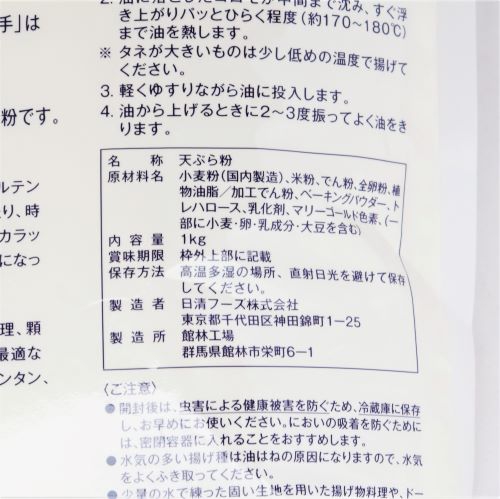 手」は
粉です。
ルテン
り、時
カラッ
になっ
理、顆
最適な
ンタン、
き上がりパッとひらく程度（約170〜180℃）
まで油を熱します。
※ タネが大きいものは少し低めの温度で揚げて
ください。
3. 軽くゆすりながら油に投入します。
4. 油から上げるときに2〜3度振ってよく油をき
ります。
名称 天ぷら粉
原材料名 小麦粉（国内製造）、米粉、でん粉、全卵粉、植
物油脂／加工でん粉、ベーキングパウダー、ト
レハロース、乳化剤、マリーゴールド色素、（一
部に小麦・卵・乳成分・大豆を含む）
内容量 1kg
賞味期限 枠外上部に記載
保存方法 高温多湿の場所、直射日光を避けて保存
してください。
製造者 日清フーズ株式会社
東京都千代田区神田錦町1－25
製造所 館林工場
群馬県館林市栄町6－1
〈ご注意〉
● 開封後は、虫害による健康被害を防ぐため、冷蔵庫に保存
し、お早めにお使いください。においの吸着を防ぐために
は、密閉容器に入れることをおすすめします。
● 水気の多い揚げ種は油はねの原因になりますので、水気
をよくふき取ってください。
● 少量の水で練った固い生地を用いた揚げ物料理や、ドー